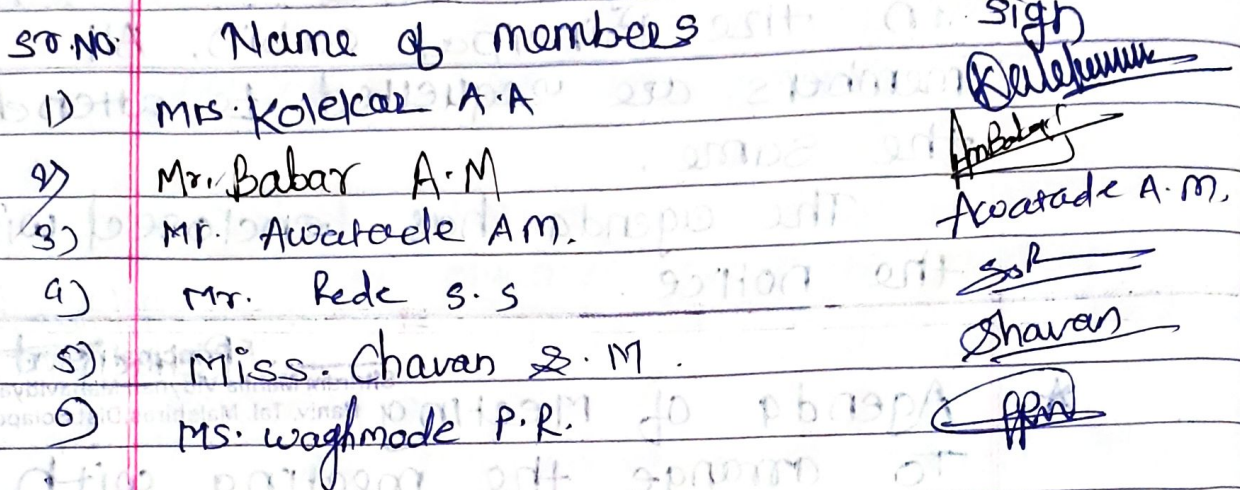 Sr.No. Name of members Sign
1) Mrs. Kolekar A.A
2) Mr. Babar A.M AmBabar
3) Mr. Awatade A M. Awatade A.M.
4) Mr. Rede S.S SSR
5) Miss. Chavan S.M. Shavan
6) Ms. Waghmode P.R.